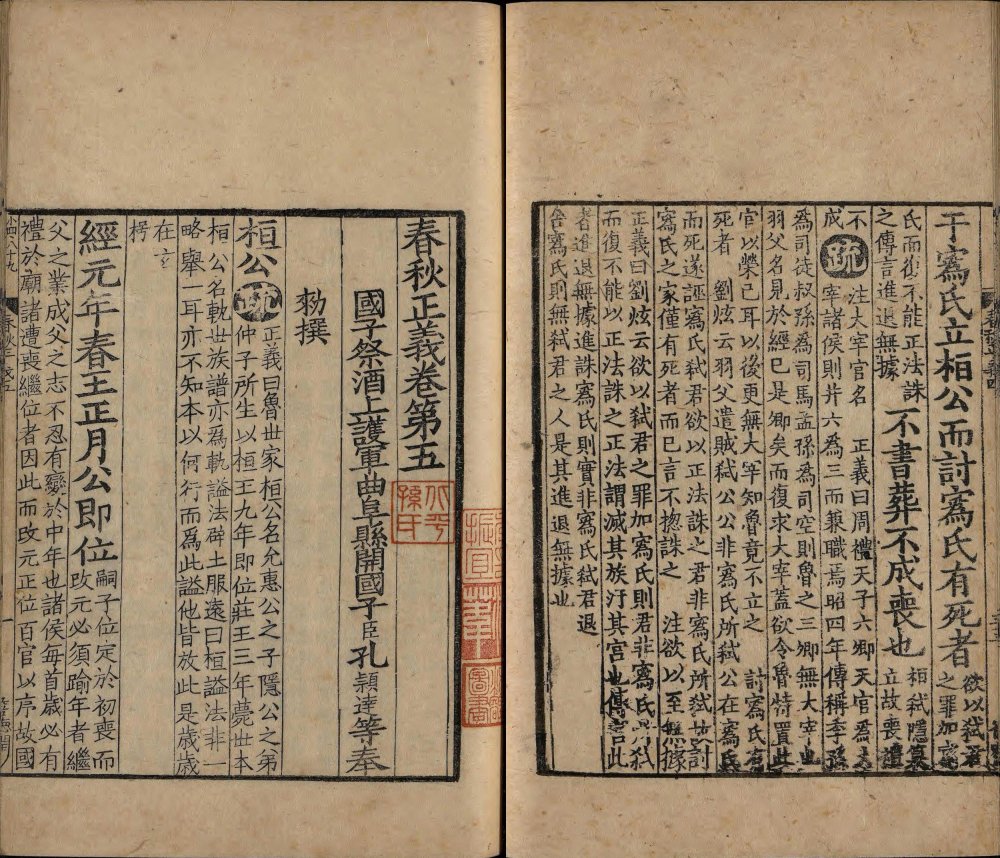 于寪氏立桓公而討寪氏有死者
欲以弑君
之罪加寪
氏而復不能正法誅
之傳言進退無據
不書葬不成喪也
桓弑隱篡
立故喪禮
不
成
疏
注大宰官名　正義曰周禮天子六卿天官為大
宰諸侯則并六為三而兼職焉昭四年傳稱季孫
為司徒叔孫為司馬孟孫為司空則魯之三卿無大宰也
羽父名見於經已是卿矣而復求大宰蓋欲令魯特置此
官以榮己耳以後更無大宰知魯竟不立之　討寪氏有
死者　劉炫云羽父遣賊弑公公非寪氏所弑公在寪氏
而死遂誣寪氏弑君欲以正法誅之君非寪氏所弑故討
寪氏之家僅有死者而已言不揔誅之　注欲以至無據
正義曰劉炫云欲以弑君之罪加寪氏則君非寪氏所弑
而復不能以正法誅之正法謂滅其族汙其宮也傳言此
者進退無據進誅寪氏則實非寪氏弑君退
舍寪氏則無弑君之人是其進退無據也
春秋正義卷第五
國子祭酒上護軍曲阜縣開國子臣孔穎達等奉
勑撰
桓公
疏
正義曰魯世家桓公名允惠公之子隱公之弟
仲子所生以桓王九年即位莊王三年薨世本
桓公名軌世族譜亦爲軌謚法辟土服遠曰桓謚法非一
略舉一耳亦不知本以何行而爲此謚他皆放此是歲歲
在玄
枵
經元年春王正月公即位
嗣子位定於初喪而
改元必須踰年者繼
父之業成父之志不忍有變於中年也諸侯每首歲必有
禮於廟諸遭喪繼位者因此而改元正位百官以序故國
孫氏